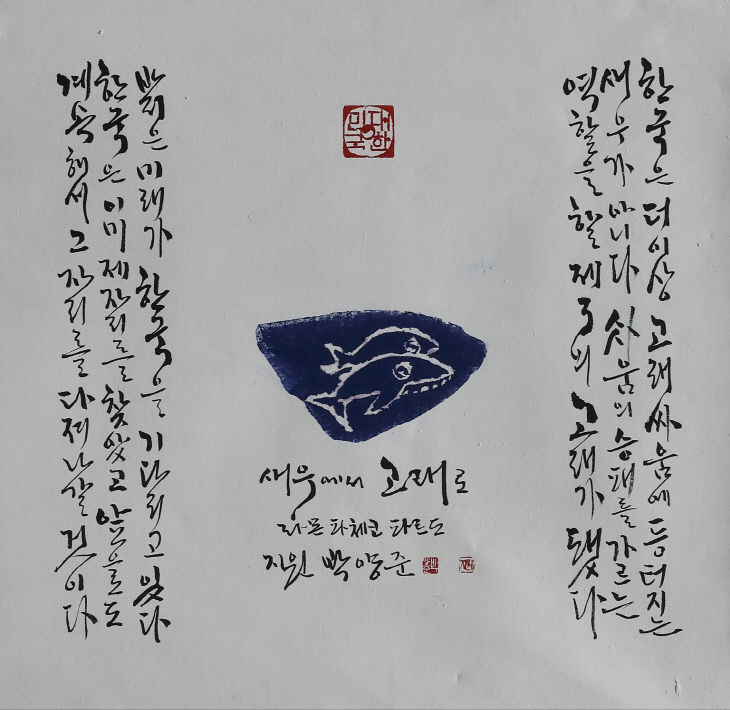 한국은 더이상 고래싸움에 등터지는
새우가 아니다 싸움의 승패를 가르는
역할을 할 제3의 고래가 됐다
대한민국
밝은 미래가 한국을 기다리고 있다
한국은 이미 제자리를 찾았고 앞으로도
계속해서 그 자리를 다져나갈 것이다
새우에서 고래로
라몬 파체코 파르도
지원 박양준